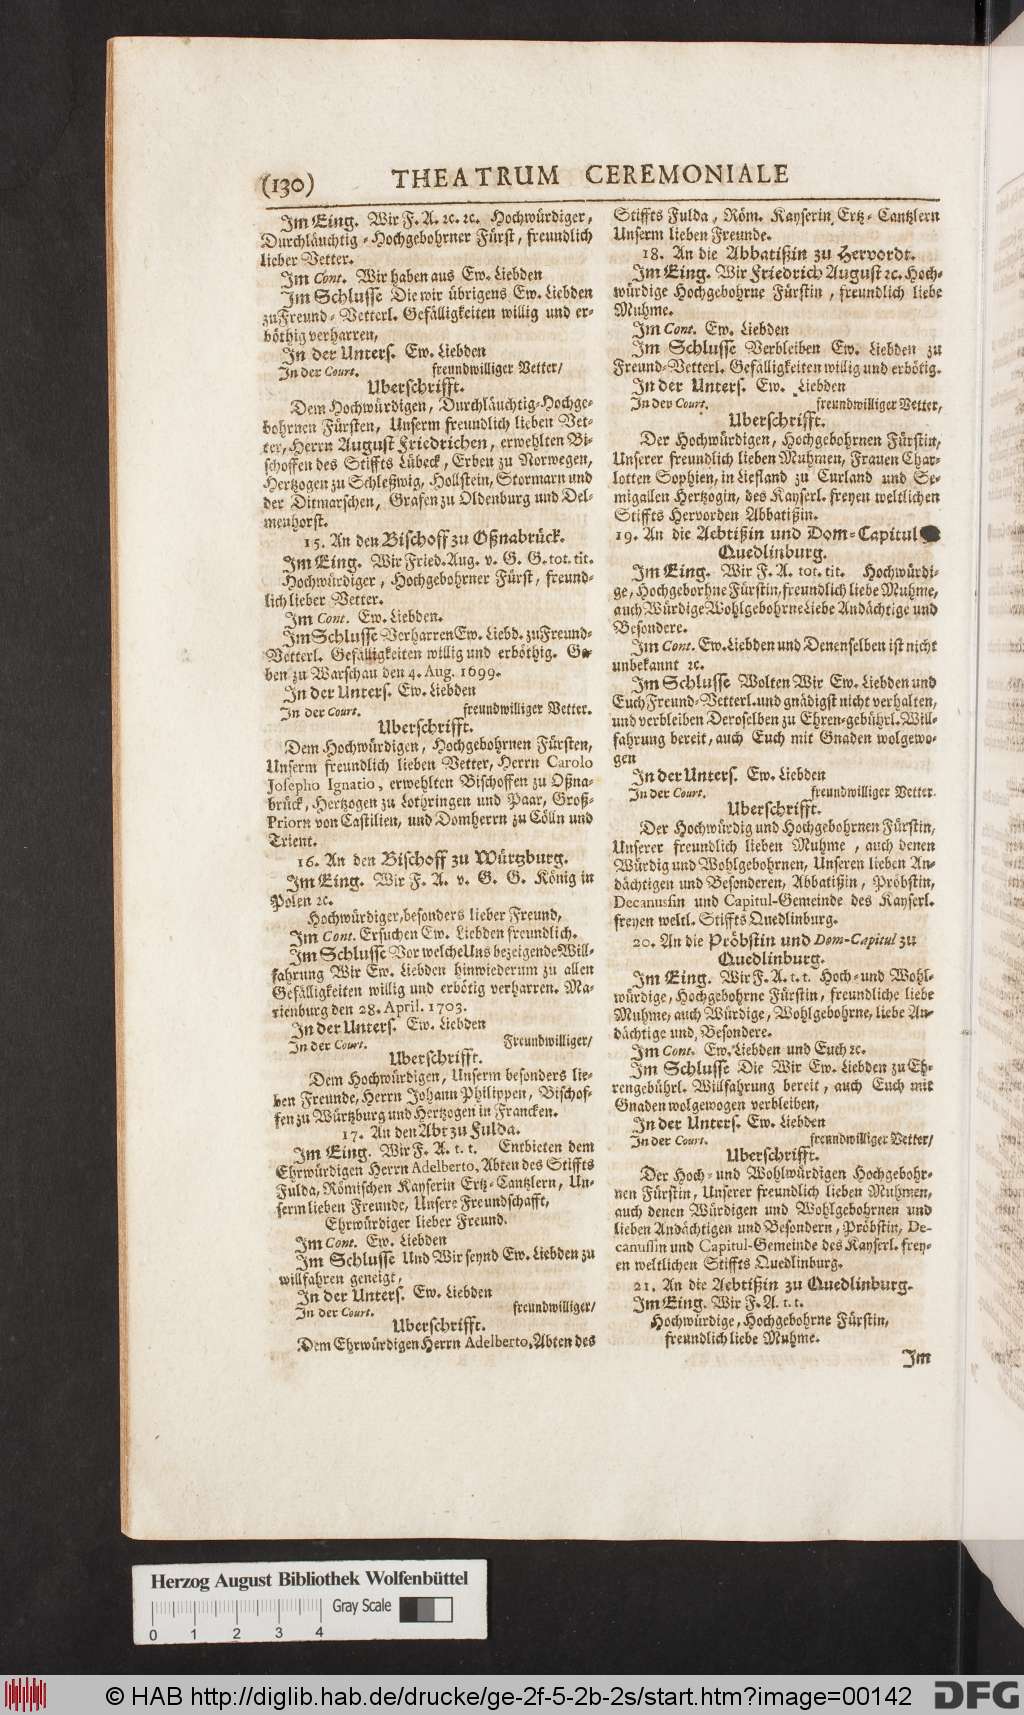 (130) THEATRUM CEREMONIALE
Im Eing. Wir F. A. ꝛc. ꝛc. Hochwürdiger,
Durchläuchtig-Hochgebohrner Fürst, freundlich
lieber Vetter.
Im Cont. Wir haben aus Ew. Liebden
Im Schlusse Die wir übrigens Ew. Liebden
zu Freund-Vetterl. Gefälligkeiten willig und er-
böthig verharren,
In der Unters. Ew. Liebden
In der Court. freundwilliger Vetter/
Uberschrifft.
Dem Hochwürdigen, Durchläuchtig-Hochge-
bohrnen Fürsten, Unserm freundlich lieben Vet-
ter, Herrn August Friedrichen, erwehlten Bi-
schoffen des Stiffts Lübeck, Erben zu Norwegen,
Hertzogen zu Schleßwig, Hollstein, Stormarn und
der Ditmarschen, Grafen zu Oldenburg und Del-
menhorst.
15. An den Bischoff zu Oßnabrück.
Im Eing. Wir Fried. Aug. v. G. G. tot. tit.
Hochwürdiger, Hochgebohrner Fürst, freund-
lich lieber Vetter.
Im Cont. Ew. Liebden.
Im Schlusse Verharren Ew. Liebd. zu Freund-
Vetterl. Gefälligkeiten willig und erböthig. Ge-
ben zu Warschau den 4. Aug. 1699.
In der Unters. Ew. Liebden
In der Court. freundwilliger Vetter.
Uberschrifft.
Dem Hochwürdigen, Hochgebohrnen Fürsten,
Unserm freundlich lieben Vetter, Herrn Carolo
Josepho Ignatio, erwehlten Bischoffen zu Oßna-
brück, Hertzogen zu Lothringen und Paar, Groß-
Priorn von Castilien, und Domherrn zu Cölln und
Trient.
16. An den Bischoff zu Würtzburg.
Im Eing. Wir F. A. v. G. G. König in
Polen ꝛc.
Hochwürdiger, besonders lieber Freund,
Im Cont. Ersuchen Ew. Liebden freundlich.
Im Schlusse Vor welche Uns bezeigende Will-
fahrung Wir Ew. Liebden hinwiederum zu allen
Gefälligkeiten willig und erbötig verharren. Ma-
rienburg den 28. April. 1703.
In der Unters. Ew. Liebden
In der Court. Freundwilliger/
Uberschrifft.
Dem Hochwürdigen, Unserm besonders lie-
ben Freunde, Herrn Johann Philippen, Bischof-
fen zu Würtzburg und Hertzogen in Francken.
17. An den Abt zu Fulda.
Im Eing. Wir F. A. t. t. Entbieten dem
Ehrwürdigen Herrn Adelberto, Abten des Stiffts
Fulda, Römischen Kayserin Ertz-Cantzlern, Un-
serm lieben Freunde, Unsere Freundschafft,
Ehrwürdiger lieber Freund.
Im Cont. Ew. Liebden
Im Schlusse Und Wir seynd Ew. Liebden zu
willfahren geneigt,
In der Unters. Ew. Liebden
In der Court. freundwilliger/
Uberschrifft.
Dem Ehrwürdigen Herrn Adelberto, Abten des
Stiffts Fulda, Röm. Kayserin Ertz-Cantzlern
Unserm lieben Freunde.
18. An die Abbatißin zu Hervordt.
Im Eing. Wir Friedrich August ꝛc. Hoch-
würdige Hochgebohrne Fürstin, freundlich liebe
Muhme.
Im Cont. Ew. Liebden
Im Schlusse Verbleiben Ew. Liebden zu
Freund-Vetterl. Gefälligkeiten willig und erbötig.
In der Unters. Ew. Liebden
In der Court. freundwilliger Vetter,
Uberschrifft.
Der Hochwürdigen, Hochgebohrnen Fürstin,
Unserer freundlich lieben Muhmen, Frauen Char-
lotten Sophien, in Liefland zu Curland und Se-
migallen Hertzogin, des Kayserl. freyen weltlichen
Stiffts Hervorden Abbatißin.
19. An die Aebtißin und Dom-Capitul
Quedlinburg.
Im Eing. Wir F. A. tot. tit. Hochwürdi-
ge, Hochgeborhne Fürstin, freundlich liebe Muhme,
auch Würdige Wohlgebohrne Liebe Andächtige und
Besondere.
Im Cont. Ew. Liebden und Denenselben ist nicht
unbekannt ꝛc.
Im Schlusse Wolten Wir Ew. Liebden und
Euch Freund-Vetterl. und gnädigst nicht verhalten,
und verbleiben Deroselben zu Ehren-gebührl. Will-
fahrung bereit, auch Euch mit Gnaden wolgewo-
gen
In der Unters. Ew. Liebden
In der Court. freundwilliger Vetter.
Uberschrifft.
Der Hochwürdig und Hochgebohrnen Fürstin,
Unserer freundlich lieben Muhme, auch denen
Würdig und Wohlgebohrnen, Unseren lieben An-
dächtigen und Besonderen, Abbatißin, Pröbstin,
Decanussin und Capitul-Gemeinde des Kayserl.
freyen weltl. Stiffts Quedlinburg.
20. An die Pröbstin und Dom-Capitul zu
Quedlinburg.
Im Eing. Wir F. A. t. t. Hoch- und Wohl-
würdige, Hochgebohrne Fürstin, freundliche liebe
Muhme, auch Würdige, Wohlgebohrne, liebe An-
dächtige und Besondere.
Im Cont. Ew. Liebden und Euch ꝛc.
Im Schlusse Die Wir Ew. Liebden zu Eh-
rengebührl. Willfahrung bereit, auch Euch mit
Gnaden wolgewogen verbleiben,
In der Unters. Ew. Liebden
In der Court. freundwilliger Vetter/
Uberschrifft.
Der Hoch- und Wohlwürdigen Hochgebohr-
nen Fürstin, Unserer freundlich lieben Muhmen,
auch denen Würdigen und Wohlgebohrnen und
lieben Andächtigen und Besondern, Pröbstin, De-
canussin und Capitul-Gemeinde des Kayserl. frey-
en weltlichen Stiffts Quedlinburg.
21. An die Aebtißin zu Quedlinburg.
Im Eing. Wir F. A. t. t.
Hochwürdige, Hochgebohrne Fürstin,
freundlich liebe Muhme.
Im
Herzog August Bibliothek Wolfenbüttel
Gray Scale
0 1 2 3 4
© HAB http://diglib.hab.de/drucke/ge-2f-5-2b-2s/start.htm?image=00142
DFG